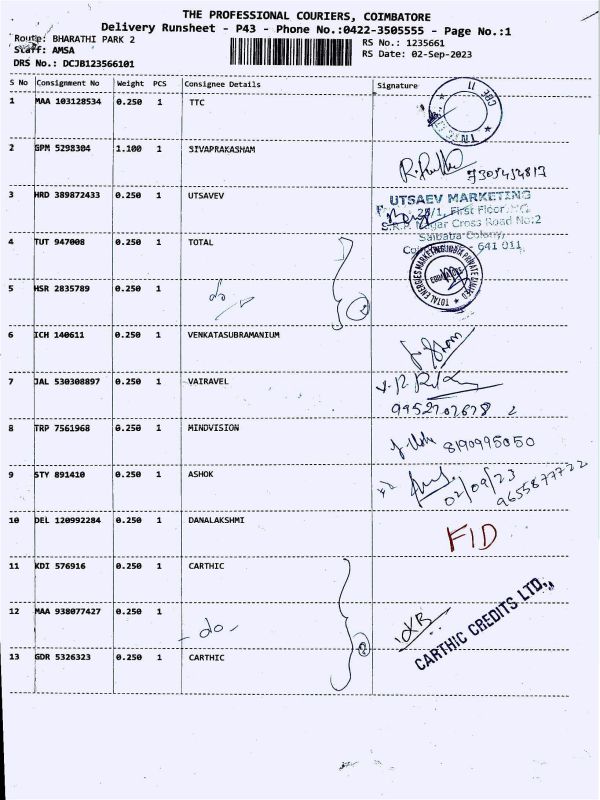 THE PROFESSIONAL COURIERS, COIMBATORE
Delivery Runsheet - P43 - Phone No.:0422-3505555 - Page No.:1
Route: BHARATHI PARK 2
RS No.: 1235661
Staff: AMSA
RS Date: 02-Sep-2023
DRS No.: DCJB123566101
S No Consignment No Weight PCS Consignee Details Signature
1 MAA 103128534 0.250 1 TTC
CBE 11
2 GPM 5298304 1.100 1 SIVAPRAKASHAM
3 HRD 389872433 0.250 1 UTSAVEV
UTSAEV MARKETING
28/1, First Floor,
Nagar Cross Road No:2
Saibaba Colony,
641 011
4 TUT 947008 0.250 1 TOTAL
TOTAL ENERGIES MARKETING INDIA PRIVATE LIMITED
5 HSR 2835789 0.250 1 do
2
6 ICH 140611 0.250 1 VENKATASUBRAMANIUM
7 JAL 530308897 0.250 1 VAIRAVEL
8 TRP 7561968 0.250 1 MINDVISION
8190995050
9 STY 891410 0.250 1 ASHOK
02/09/23
9655877722
10 DEL 120992284 0.250 1 DANALAKSHMI
FID
11 KDI 576916 0.250 1 CARTHIC
12 MAA 938077427 0.250 1 - do -
CARTHIC CREDITS LTD.,
13 GDR 5326323 0.250 1 CARTHIC